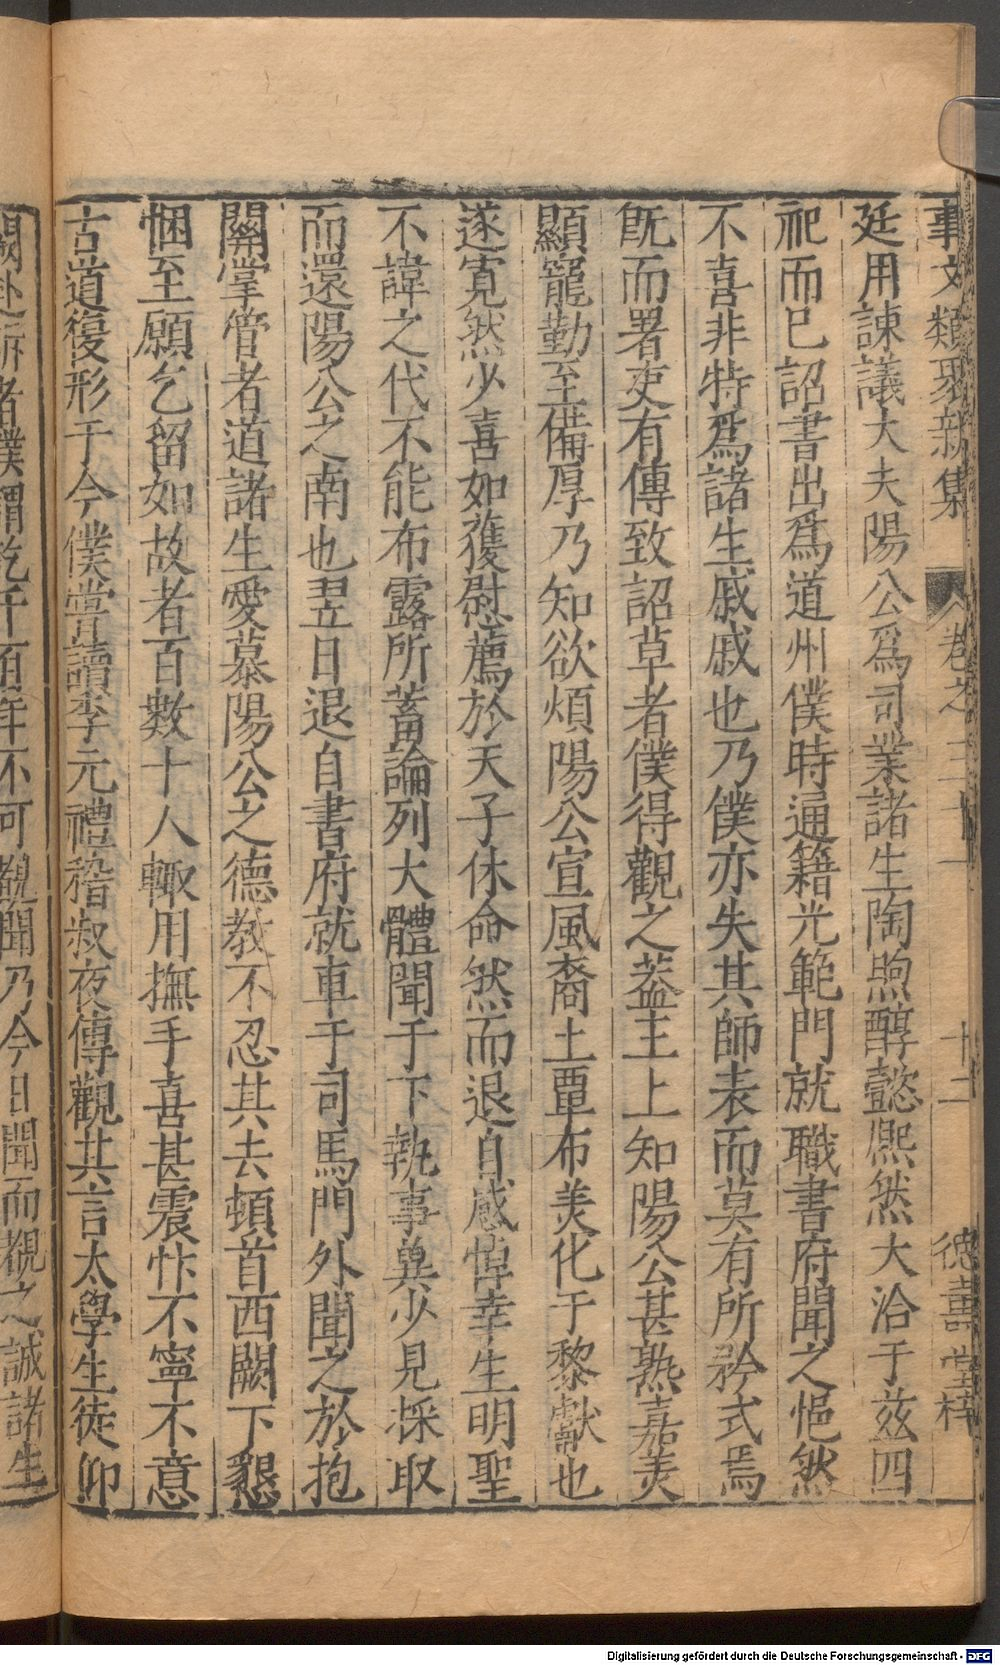 事文類聚新集 卷之三十一 十二 德壽堂梓
廷用諫議大夫陽公爲司業諸生陶煦醇懿熙然大洽于兹四
祀而已詔書出爲道州僕時通籍光範門就職書府聞之悒然
不喜非特爲諸生戚戚也乃僕亦失其師表而莫有所矜式焉
旣而署吏有傳致詔草者僕得觀之葢主上知陽公甚熟嘉美
顯寵勤至備厚乃知欲煩陽公宣風裔土覃布美化于黎獻也
遂寛然少喜如獲慰薦於天子休命然而退自感悼幸生明聖
不諱之代不能布露所蓄論列大體聞于下執事冀少見採取
而還陽公之南也翌日退自書府就車于司馬門外聞之於抱
關掌管者道諸生愛慕陽公之德教不忍其去頓首西闕下懇
悃至願乞留如故者百數十人輙用撫手喜甚震忭不寧不意
古道復形于今僕嘗讀李元禮嵇叔夜傳觀其言太學生徒仰
闕赴訴者僕謂訖千百年不可覩聞乃今日聞而覩之誠諸生